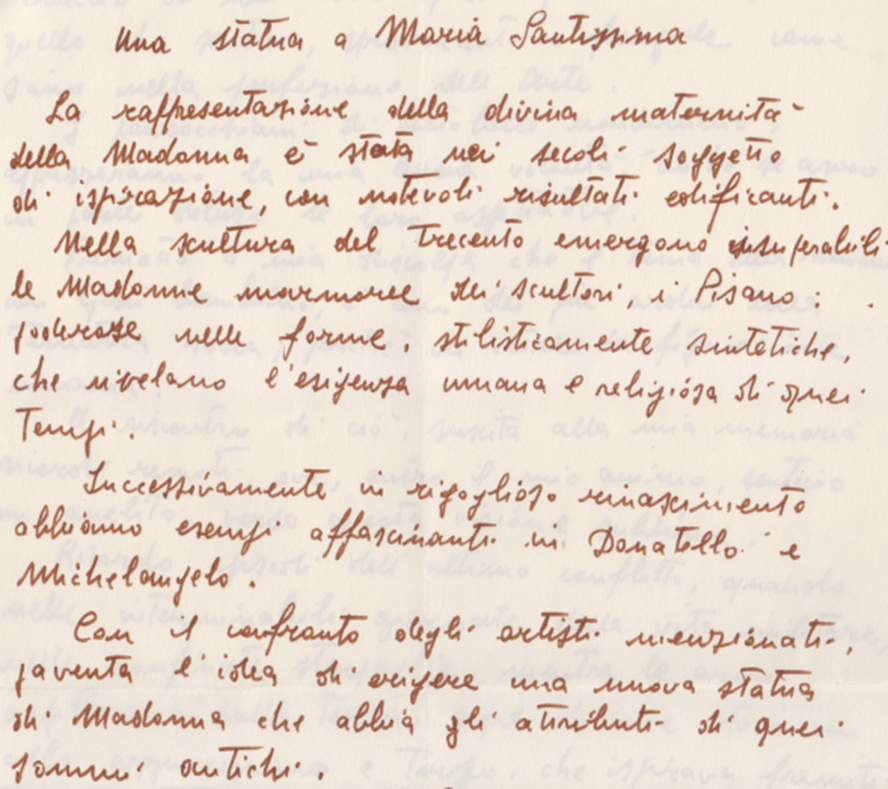 Una statua a Maria Santissima
La raffresentazione della divina maternità
della Madonna è stata nei secoli soggetto
di ispirazione, con notevoli risultati edificanti.
Nella scultura del trecento emergono insuperabili
le Madonne marmoree dei scultori, i Pisano:
poderose nelle forme, stilisticamente sintetiche,
che rivelano l'esigenza umana e religiosa di quei
Tempi.
Successivamente in rigoglioso rinascimento
abbiamo esempi affascinanti in Donatello e
Michelangelo.
Con il confronto degli artisti menzionati,
paventa l'idea di erigere una nuova statua
di Madonna che abbia gli attributi di quei
sommi antichi.